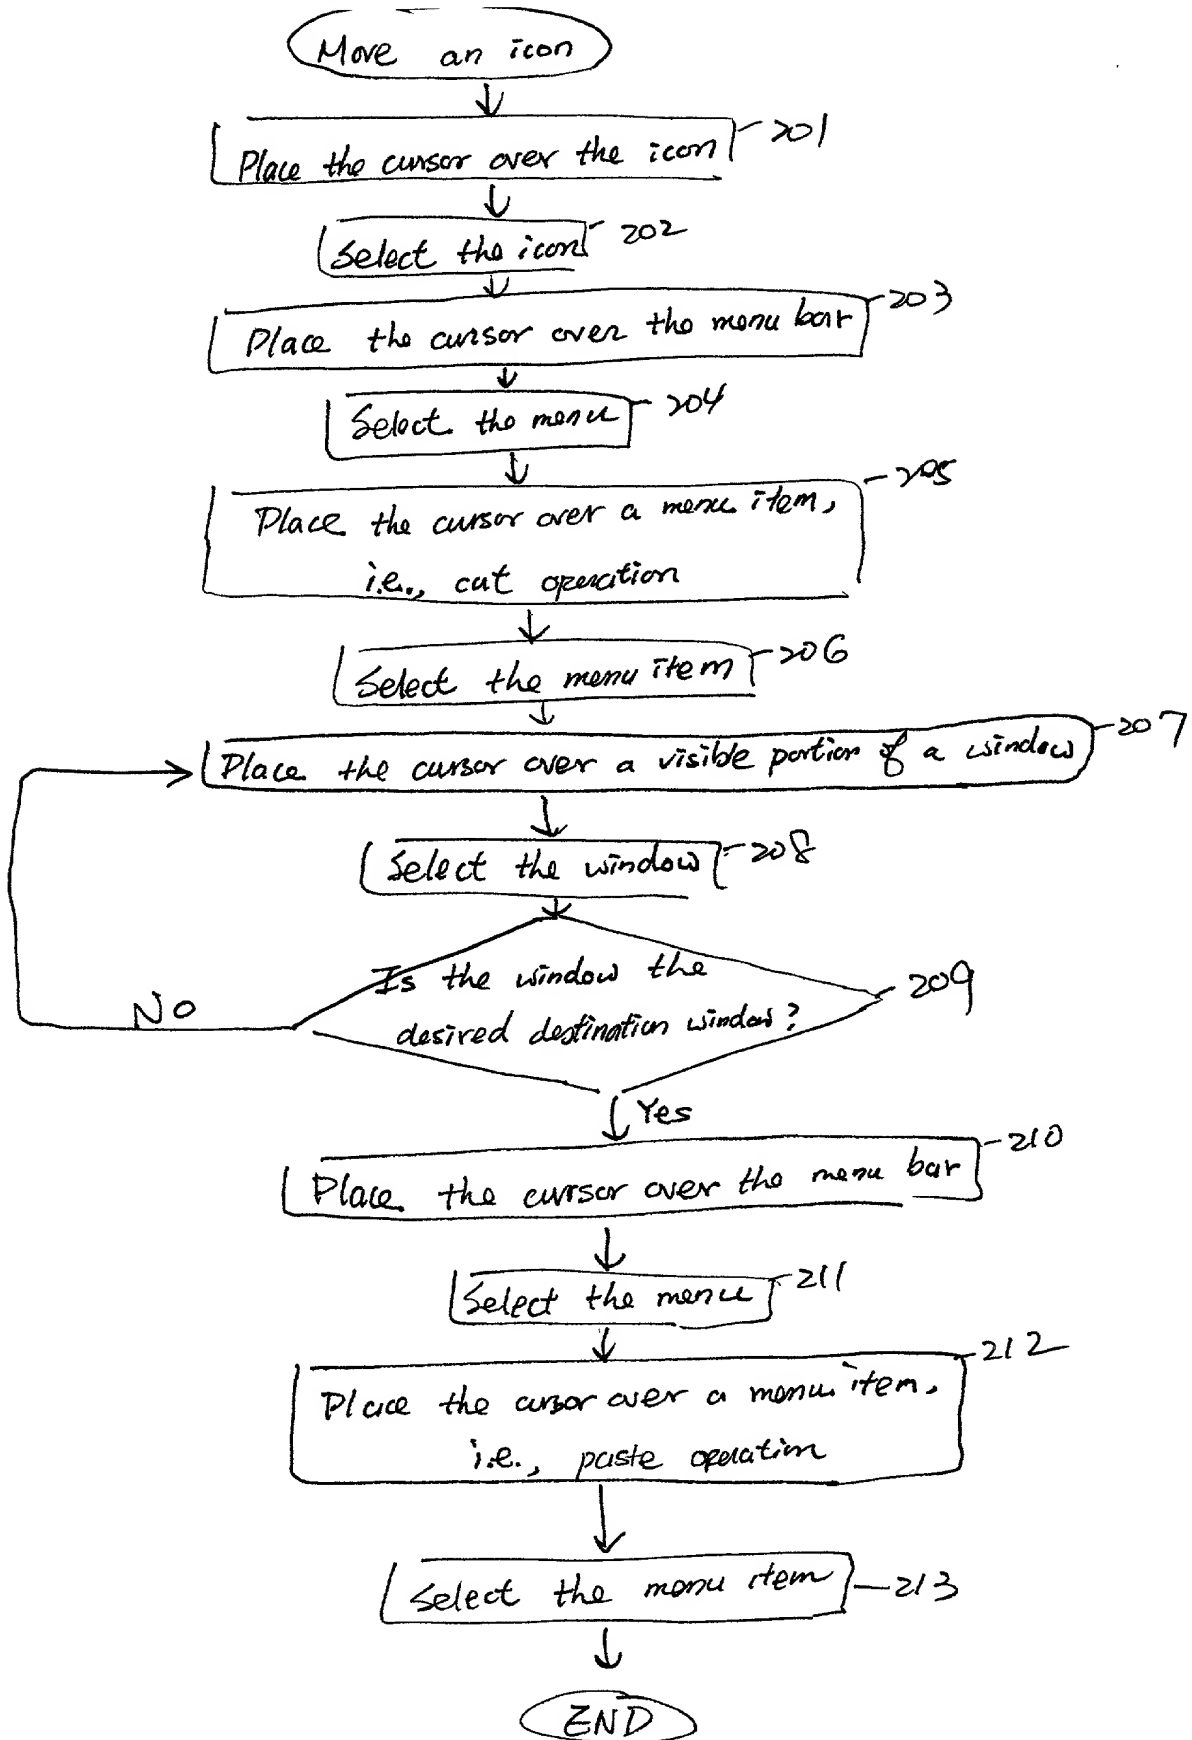 Move an icon
201
Place the cursor over the icon
202
Select the icon
203
Place the cursor over the menu bar
204
Select the menu
205
Place the cursor over a menu item,
i.e., cut operation
206
Select the menu item
207
Place the cursor over a visible portion of a window
208
Select the window
Is the window the
209
desired destination window?
No
Yes
210
Place the cursor over the menu bar
211
Select the menu
212
Place the cursor over a menu item,
i.e., paste operation
Select the menu item
213
END